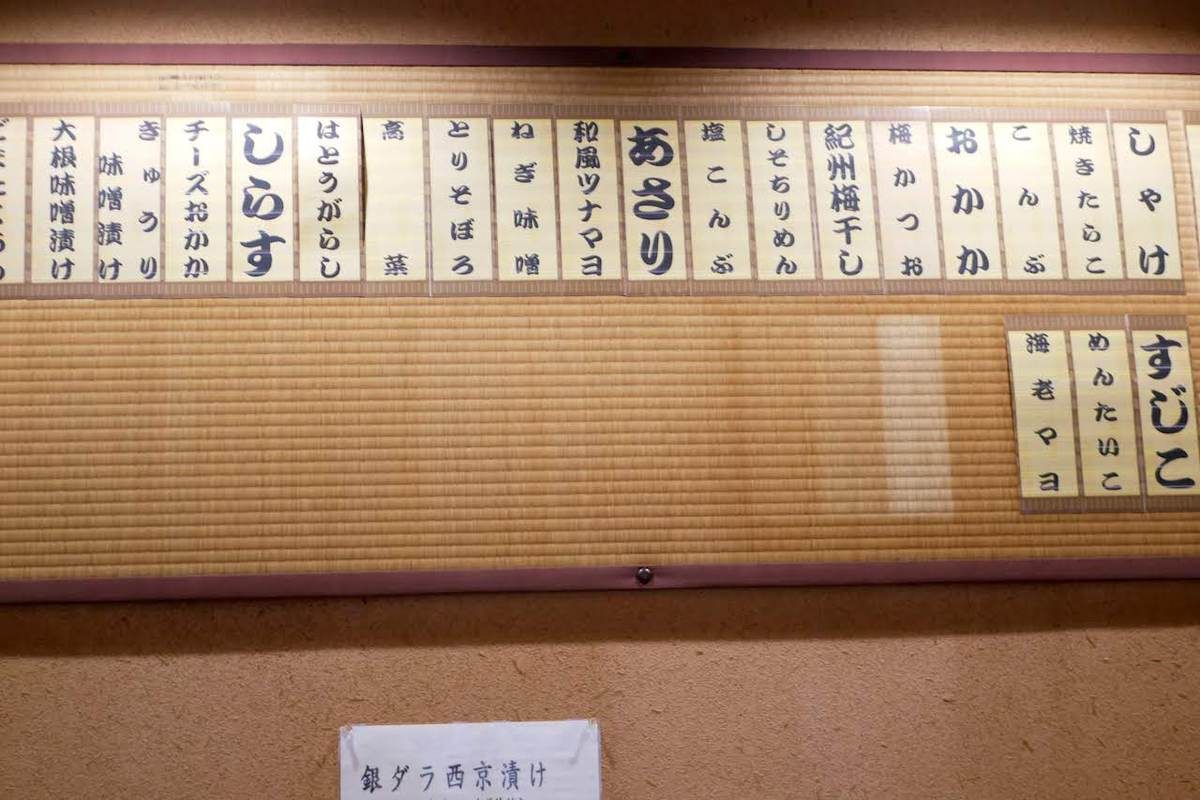 しゃけ
焼きたらこ
こんぶ
おかか
梅かつお
紀州梅干し
しそちりめん
塩こんぶ
あさり
和風ツナマヨ
ねぎ味噌
とりそぼろ
高菜
はとうがらし
しらす
チーズおかか
きゅうり
味噌漬け
大根味噌漬け
すじこ
めんたいこ
海老マヨ
銀ダラ西京漬け